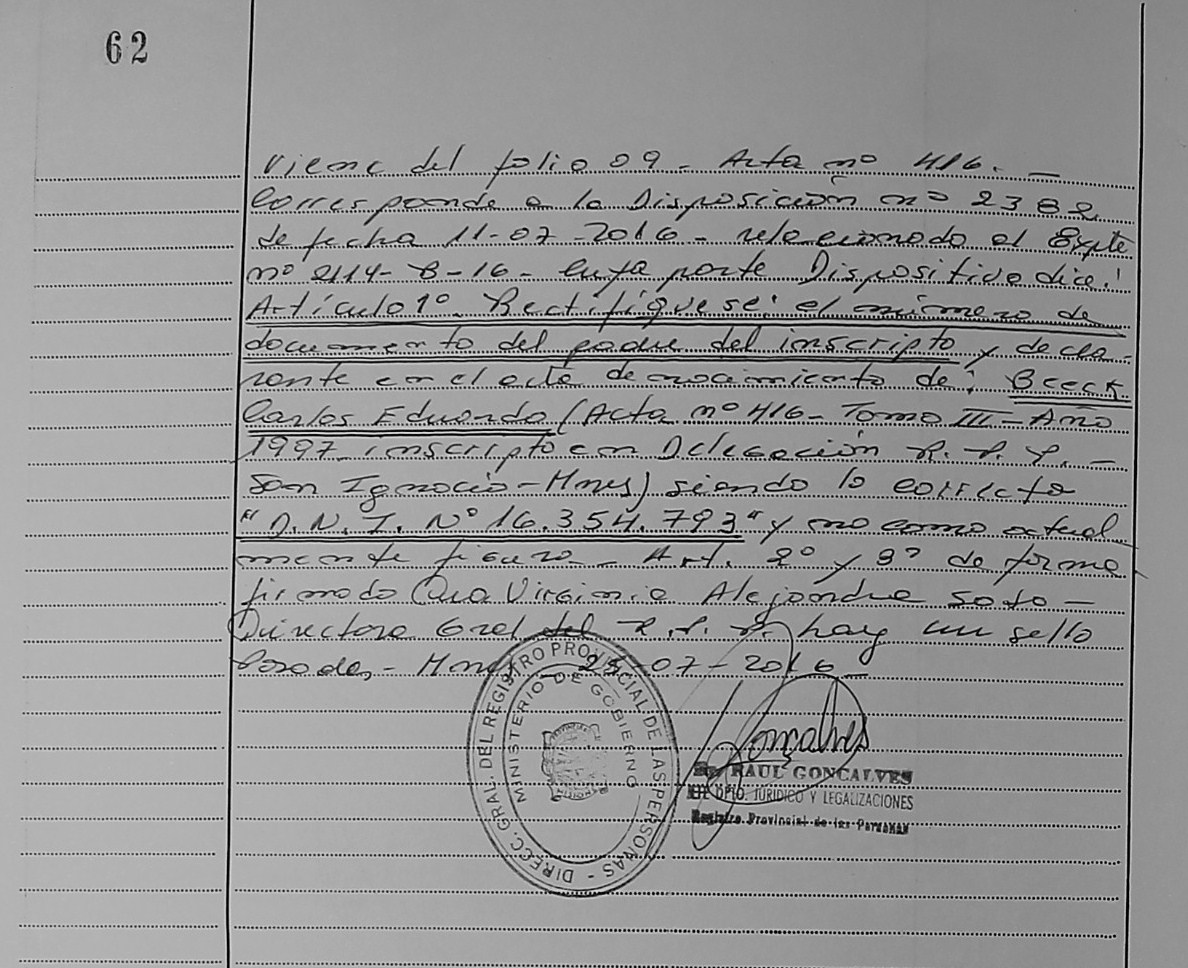 62
Viene del folio 09 - Acta nº 416. -
Corresponde a la Disposición nº 2382
de fecha 11-07-2016 - relacionado al Expte
nº 2114-B-16 - cuya parte Dispositiva dice:
Artículo 1º - Rectifíquese: el número de
documento del padre del inscripto y decla-
rante en el acta de nacimiento de:
Carlos Eduardo (Acta nº 416 - Tomo III - Año
1997 - inscripto en Delegación R. P. P. -
San Ignacio - Mnes) siendo lo correcto
"D. N. I. Nº 16.354.793" y no como actual
mente figura - Art. 2º y 3º de forma
firmado Virginia Alejandra Soto -
Directora Gral del R. P. P. hay un sello
Posadas - Mnes 25-07-2016 -
DIRECC. GRAL. DEL REGISTRO PROVINCIAL DE LAS PERSONAS -
MINISTERIO DE GOBIERNO
Gonçalves
RAUL GONCALVES
DPTO. JURIDICO Y LEGALIZACIONES
Registro Provincial de las Personas